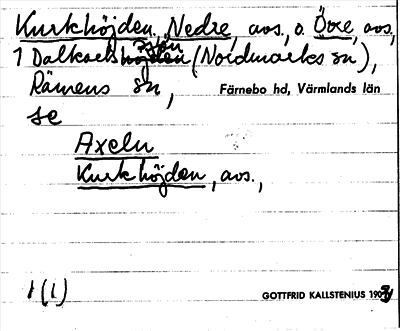 Kurkhöjden, Nedre, avs., o. Övre, avs.,
1 Dalkarlssjön (Nordmarks sn),
Rämens sn, Färnebo hd, Värmlands län
se
Axeln
Kurkhöjden, avs.,
1(1) GOTTFRID KALLSTENIUS 190